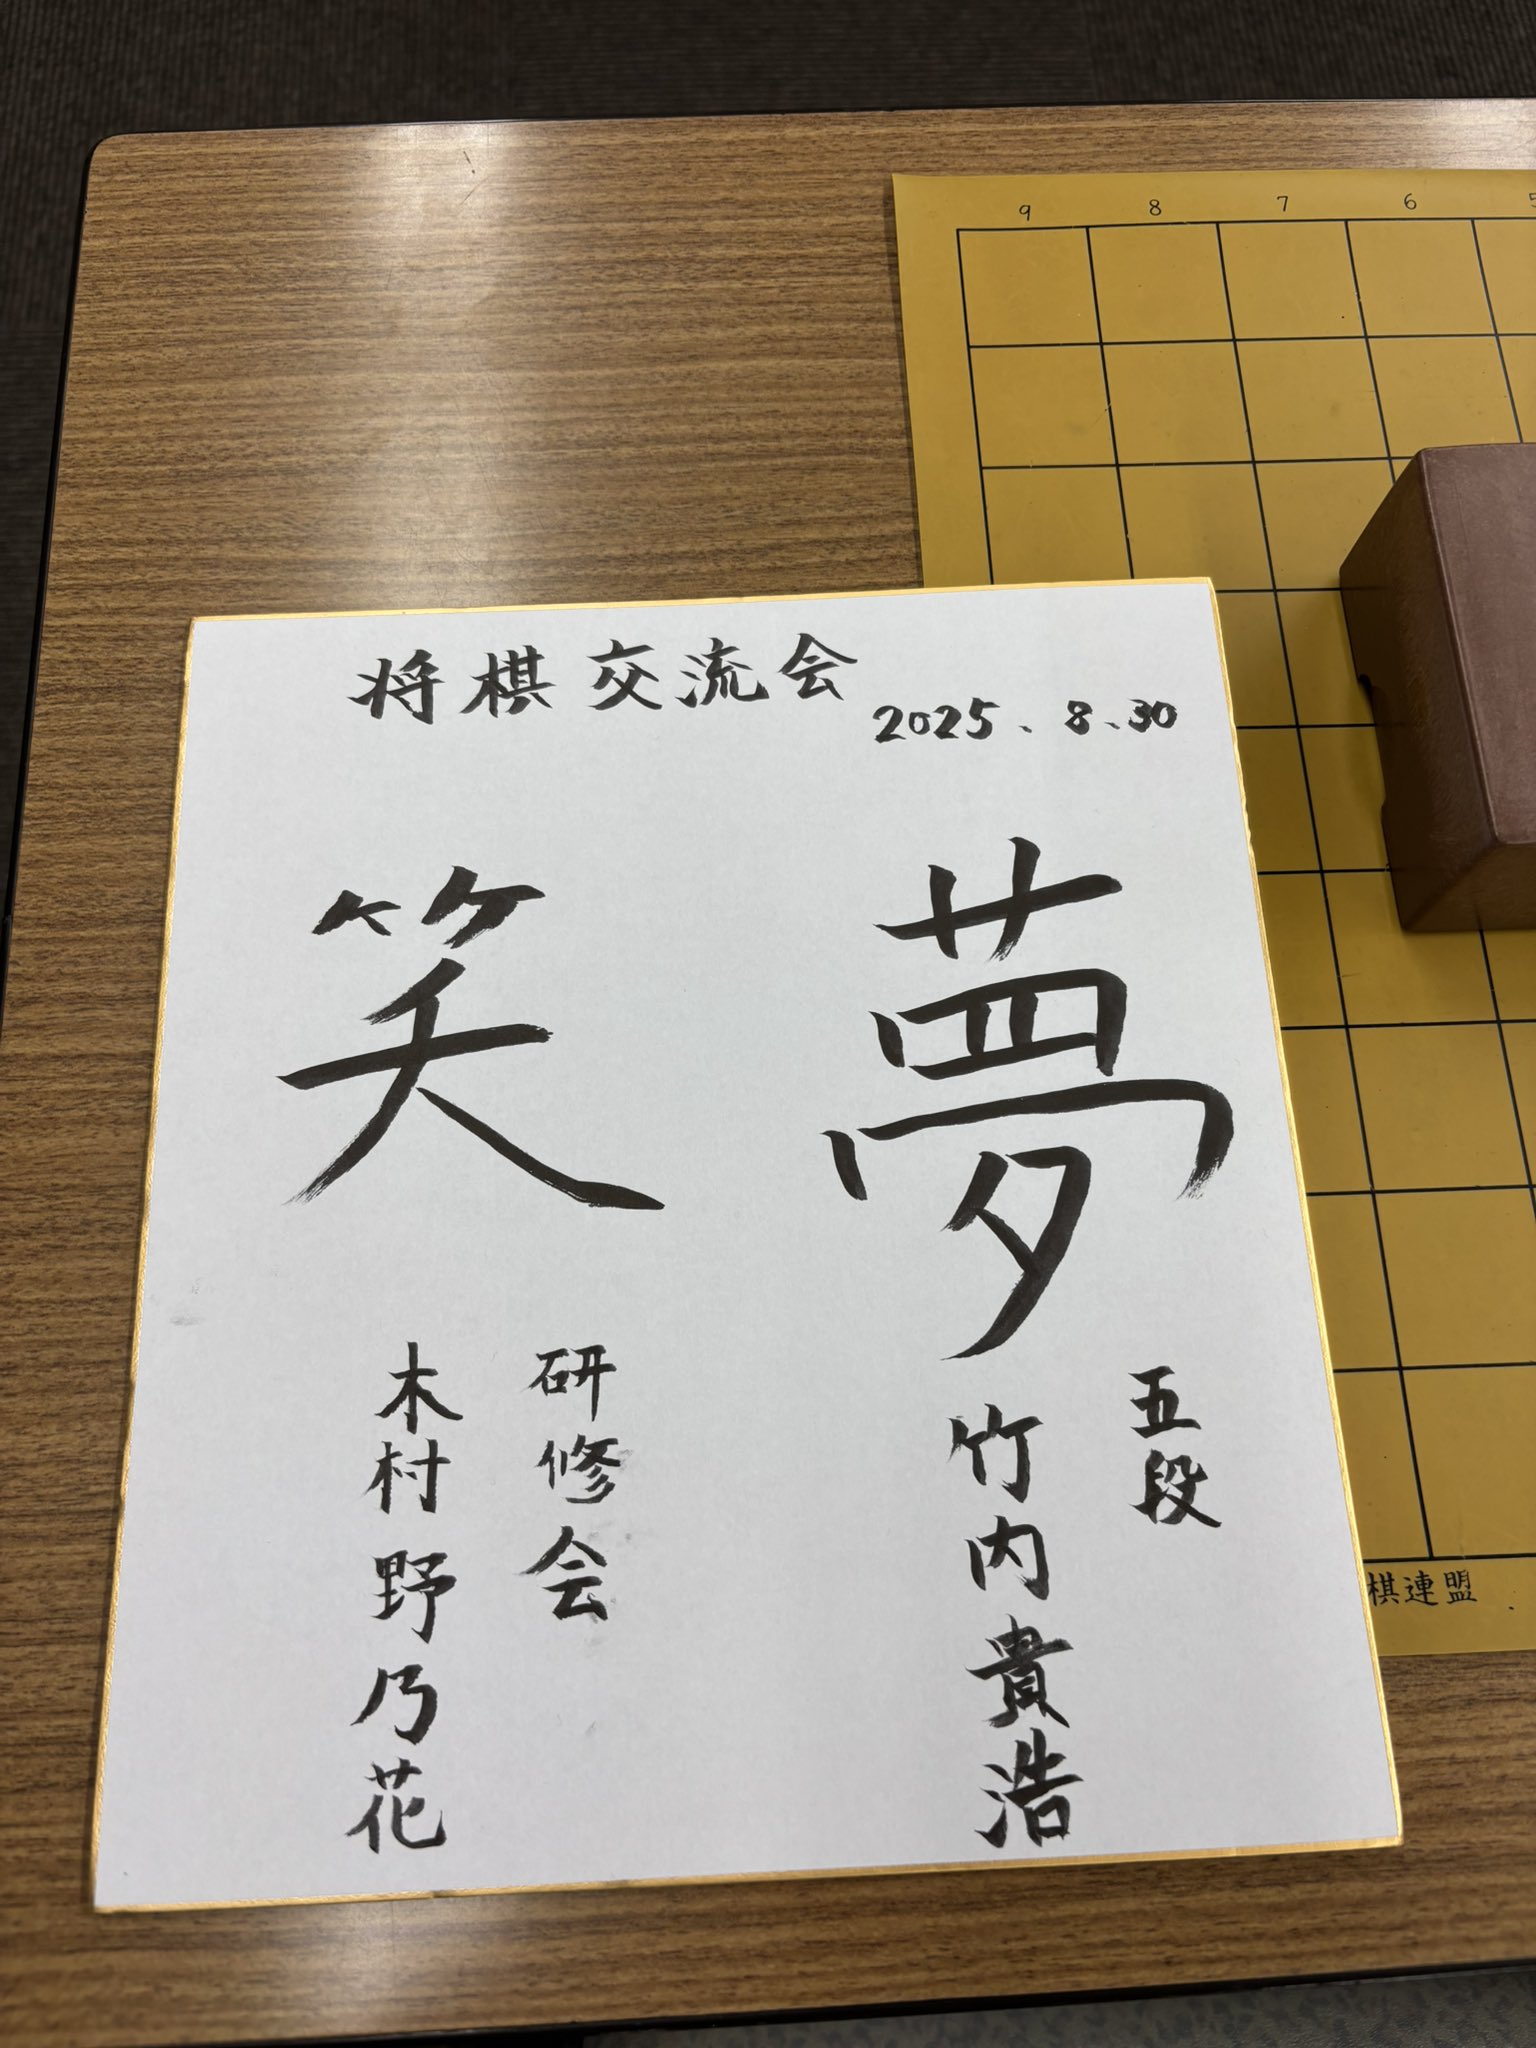 9 8 7 6
将棋交流会
2025.8.30
夢
五段
竹内貴浩
笑
研修会
木村野乃花
棋連盟